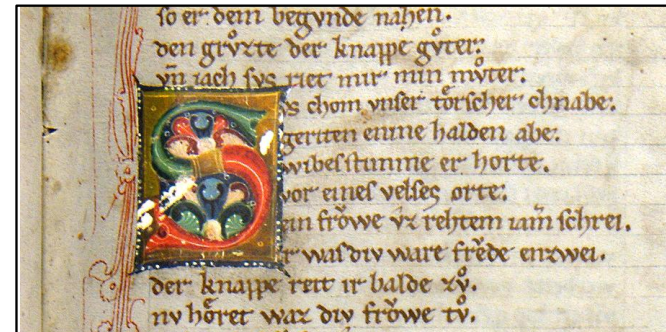 so er dem begvnde nahen.
den grvͦzte der knappe gvͦter.
vn̄ iach svs riet mir min mvͦter.
Svs chom vnser toͤrscher chnabe.
geriten einne halden abe.
wibes stimme er horte.
vor eines velses orte.
ein froͮwe vz rehtem iam̄ schrei.
ir was div ware freͮde enzwei.
der knappe reit ir balde zvͦ.
nv hoͤret waz div froͮwe tvͦ.